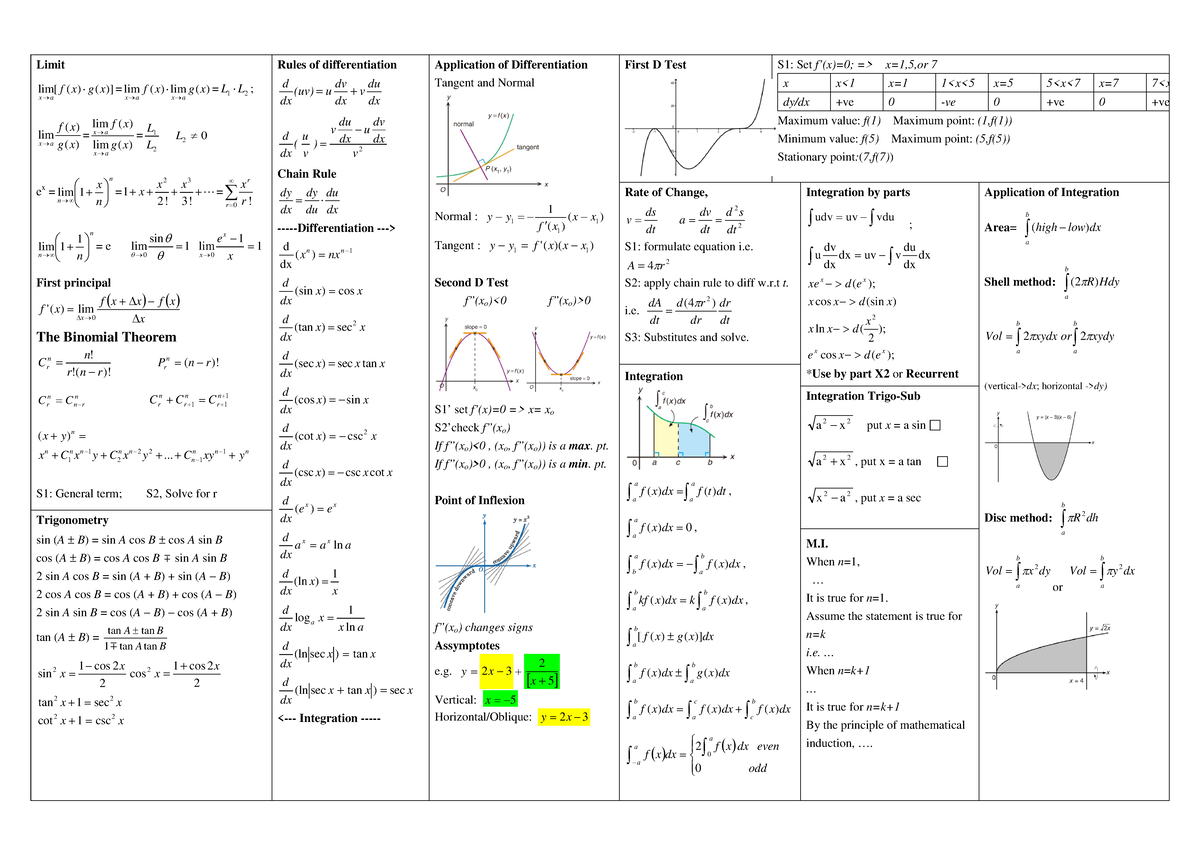 Limit
lim x→a [f(x)·g(x)] = lim x→a f(x)·lim x→a g(x) = L₁·L₂ ;
lim x→a f(x)/g(x) = lim x→a f(x) / lim x→a g(x) = L₁/L₂   L₂ ≠ 0
eˣ = lim n→∞ (1 + x/n)ⁿ = 1 + x + x²/2! + x³/3! + ··· = ∑ r=0 ∞ xʳ/r!
lim n→∞ (1 + 1/n)ⁿ = e   lim θ→0 sin θ/θ = 1   lim x→0 (eˣ − 1)/x = 1
First principal
f'(x) = lim Δx→0 (f(x + Δx) − f(x))/Δx
The Binomial Theorem
Cⁿᵣ = n!/(r!(n − r)!)   Pⁿᵣ = (n − r)!
Cⁿᵣ = Cⁿₙ₋ᵣ   Cⁿᵣ + Cⁿᵣ₊₁ = Cⁿ⁺¹ᵣ₊₁
(x + y)ⁿ =
xⁿ + Cⁿ₁xⁿ⁻¹y + Cⁿ₂xⁿ⁻²y² + ... + Cⁿₙ₋₁xyⁿ⁻¹ + yⁿ
S1: General term;   S2, Solve for r
Trigonometry
sin (A ± B) = sin A cos B ± cos A sin B
cos (A ± B) = cos A cos B ∓ sin A sin B
2 sin A cos B = sin (A + B) + sin (A − B)
2 cos A cos B = cos (A + B) + cos (A − B)
2 sin A sin B = cos (A − B) − cos (A + B)
tan (A ± B) = (tan A ± tan B)/(1 ∓ tan A tan B)
sin² x = (1 − cos 2x)/2   cos² x = (1 + cos 2x)/2
tan² x + 1 = sec² x
cot² x + 1 = csc² x
Rules of differentiation
d/dx (uv) = u dv/dx + v du/dx
d/dx (u/v) = (v du/dx − u dv/dx)/v²
Chain Rule
dy/dx = dy/du · du/dx
-----Differentiation --->
d/dx (xⁿ) = nxⁿ⁻¹
d/dx (sin x) = cos x
d/dx (tan x) = sec² x
d/dx (sec x) = sec x tan x
d/dx (cos x) = −sin x
d/dx (cot x) = −csc² x
d/dx (csc x) = −csc x cot x
d/dx (eˣ) = eˣ
d/dx aˣ = aˣ ln a
d/dx (ln x) = 1/x
d/dx logₐ x = 1/(x ln a)
d/dx (ln|sec x|) = tan x
d/dx (ln|sec x + tan x|) = sec x
<--- Integration -----
Application of Differentiation
Tangent and Normal
y
y = f(x)
normal
tangent
P (x₁, y₁)
O
x
Normal : y − y₁ = −1/f'(x₁) (x − x₁)
Tangent : y − y₁ = f'(x)(x − x₁)
Second D Test
f"(xₒ)<0   f"(xₒ)>0
y
slope = 0
y = f(x)
O
x₀
x
y
y = f(x)
slope = 0
O
x₀
x
S1' set f'(x)=0 => x= xₒ
S2'check f"(xₒ)
If f"(xₒ)<0 , (xₒ, f"(xₒ)) is a max. pt.
If f"(xₒ)>0 , (xₒ, f"(xₒ)) is a min. pt.
Point of Inflexion
y
y = x³
concave upward
O
x
concave downward
f"(xₒ) changes signs
Assymptotes
e.g. y = 2x − 3 + 2/[x + 5]
Vertical: x = −5
Horizontal/Oblique: y = 2x − 3
First D Test
S1: Set f'(x)=0; => x=1,5,or 7
x   x<1   x=1   1<x<5   x=5   5<x<7   x=7   7<x
dy/dx   +ve   0   -ve   0   +ve   0   +ve
Maximum value: f(1)   Maximum point: (1,f(1))
Minimum value: f(5)   Maximum point: (5,f(5))
Stationary point:(7,f(7))
Rate of Change,
v = ds/dt   a = dv/dt = d²s/dt²
S1: formulate equation i.e.
A = 4πr²
S2: apply chain rule to diff w.r.t t.
i.e. dA/dt = d(4πr²)/dr dr/dt
S3: Substitutes and solve.
Integration
y
∫ₐᶜ f(x)dx
f(x)dx
0
a
c
b
x
∫ₐᵃ f(x)dx = ∫ₐᵃ f(t)dt ,
∫ₐᵃ f(x)dx = 0 ,
∫_b^a f(x)dx = −∫_a^b f(x)dx ,
∫_a^b kf(x)dx = k∫_a^b f(x)dx ,
∫_a^b [f(x) ± g(x)]dx
∫_a^b f(x)dx ± ∫_a^b g(x)dx
∫_a^b f(x)dx = ∫_a^c f(x)dx + ∫_c^b f(x)dx
∫_{-a}^a f(x)dx = { 2∫_0^a f(x)dx even
0 odd
Integration by parts
∫udv = uv − ∫vdu ;
∫u dv/dx dx = uv − ∫v du/dx dx
xeˣ −> d(eˣ);
x cos x −> d(sin x)
x ln x −> d(x²/2);
eˣ cos x −> d(eˣ);
*Use by part X2 or Recurrent
Integration Trigo-Sub
√(a² − x²)   put x = a sin □
√(a² + x²) , put x = a tan □
√(x² − a²) , put x = a sec
M.I.
When n=1,
…
It is true for n=1.
Assume the statement is true for
n=k
i.e. …
When n=k+1
…
It is true for n=k+1
By the principle of mathematical
induction, ….
Application of Integration
Area= ∫_a^b (high − low)dx
Shell method: ∫_a^b (2πR)Hdy
Vol = ∫_a^b 2πxydx or ∫_a^b 2πxydy
(vertical->dx; horizontal ->dy)
y
y = (x − 3)(x − 6)
0
x
Disc method: ∫_a^b πR²dh
Vol = ∫_a^b πx²dy   Vol = ∫_a^b πy²dx
or
y
y = √2x
0
x = 4
x